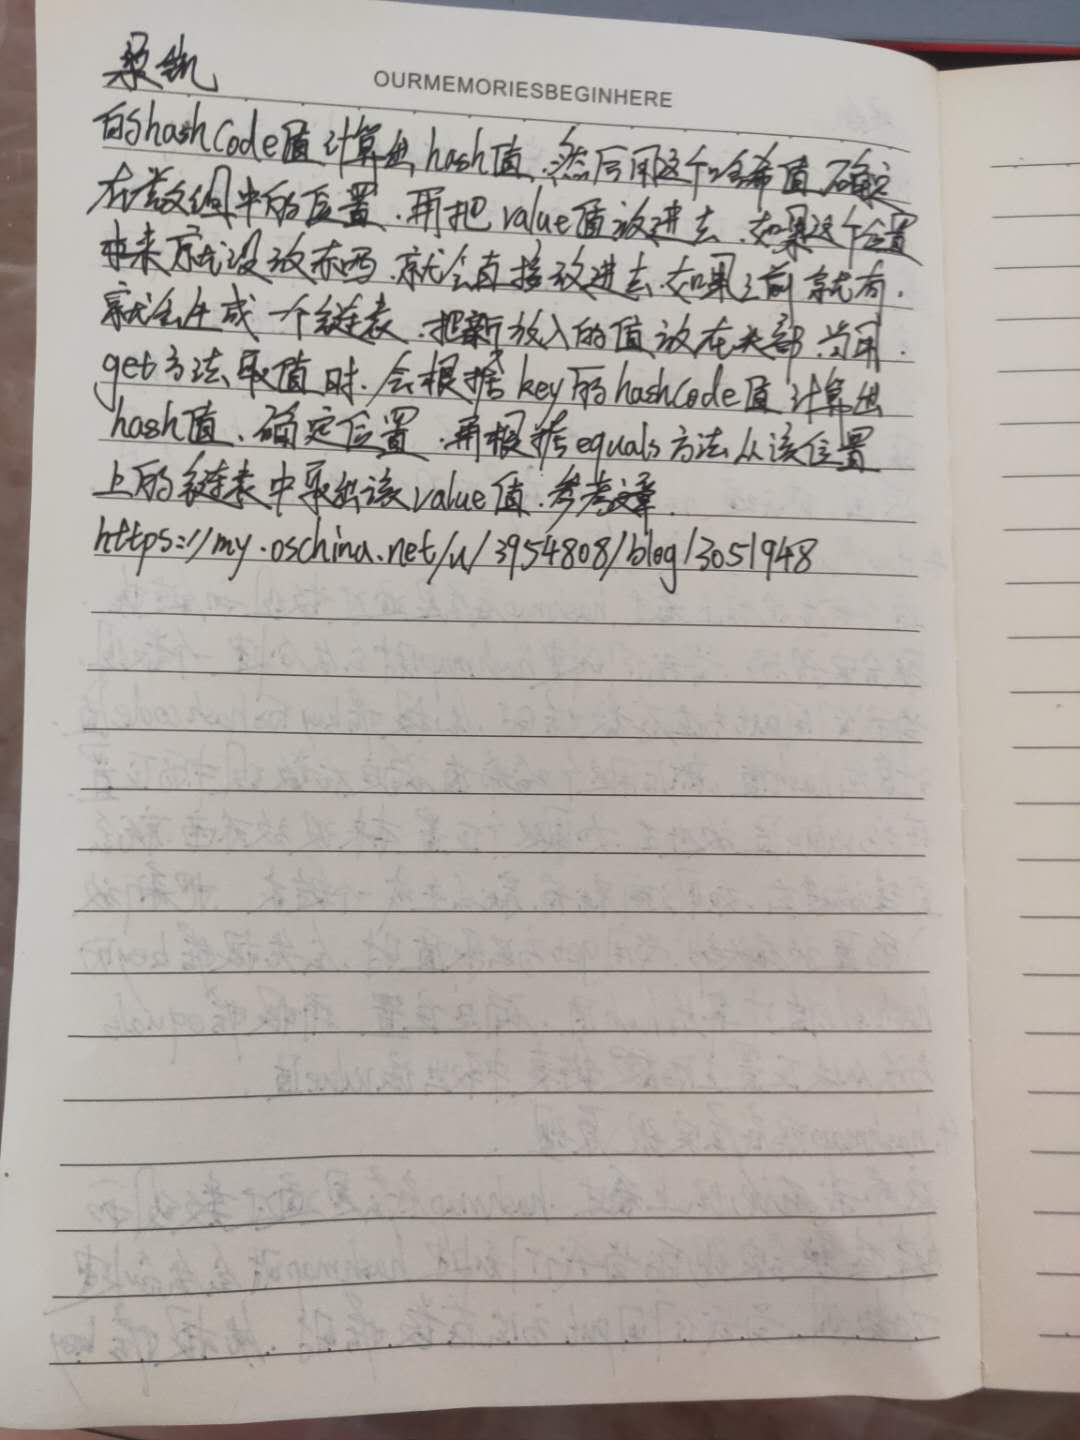 梁凯
OURMEMORIESBEGINHERE
的hashCode值计算出hash值,然后用这个哈希值确定
在数组中的位置.再把value值放进去.如果这个位置
本来就没放东西.就会直接放进去.如果之前就有.
就会生成一个链表.把新放入的值放在头部.当用.
get方法取值时.会根据key的hashCode值计算出
hash值、确定位置.再根据equals方法从该位置
上的链表中取出该value值.参考文章.
https://my.oschina.net/u/3954808/blog/3051948